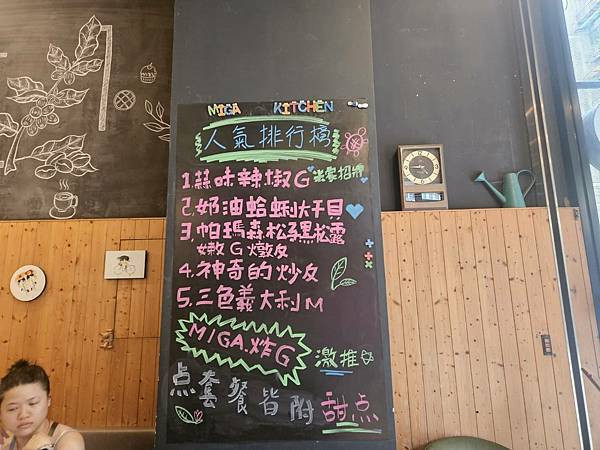 MIGA KITCHEN
人氣排行榜
1.蒜味辣椒G 米家招牌
2.奶油蛤蜊大干貝
3.帕瑪森松子黑松露
嫩G燉反
4.神奇的炒反
5.三色義大利M
MIGA.炸G
激推
点套餐皆附甜点